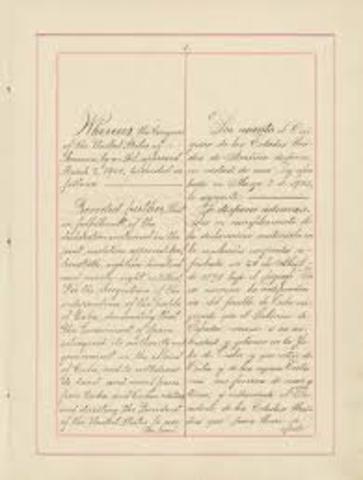 Whereas the Congress
of the United States of
America, by an Act approved
March 2, 1901, provided as
follows:
Provided further, That
in fulfillment of the
declaration contained in the
joint resolution approved
twentieth, eighteen hundred
and ninety-eight, entitled
"For the recognition of the
independence of the people
of Cuba, demanding that
the Government of Spain
relinquish its authority and
government in the island
of Cuba, and to withdraw
its land and naval forces
from Cuba and Cuban waters,
and directing the President
of the United States to use
Por cuanto el Con-
greso de los Estados Uni-
dos de América, dispuso
en virtud de una Ley apro-
bada en Marzo 2 de 1901,
lo siguiente:
Se dispone además:
Que en cumplimiento de
la declaración contenida en
la resolución conjunta a-
probada en 20 de Abril
de 1898
la independen-
cia del pueblo de Cuba
que el Gobierno de
España a su au-
toridad y gobierno en la Is-
la de Cuba, y que retire de
Cuba y de las aguas Cuba-
nas sus fuerzas de mar y
tierra, y al Pre-
sidente de los Estados Uni-
dos que